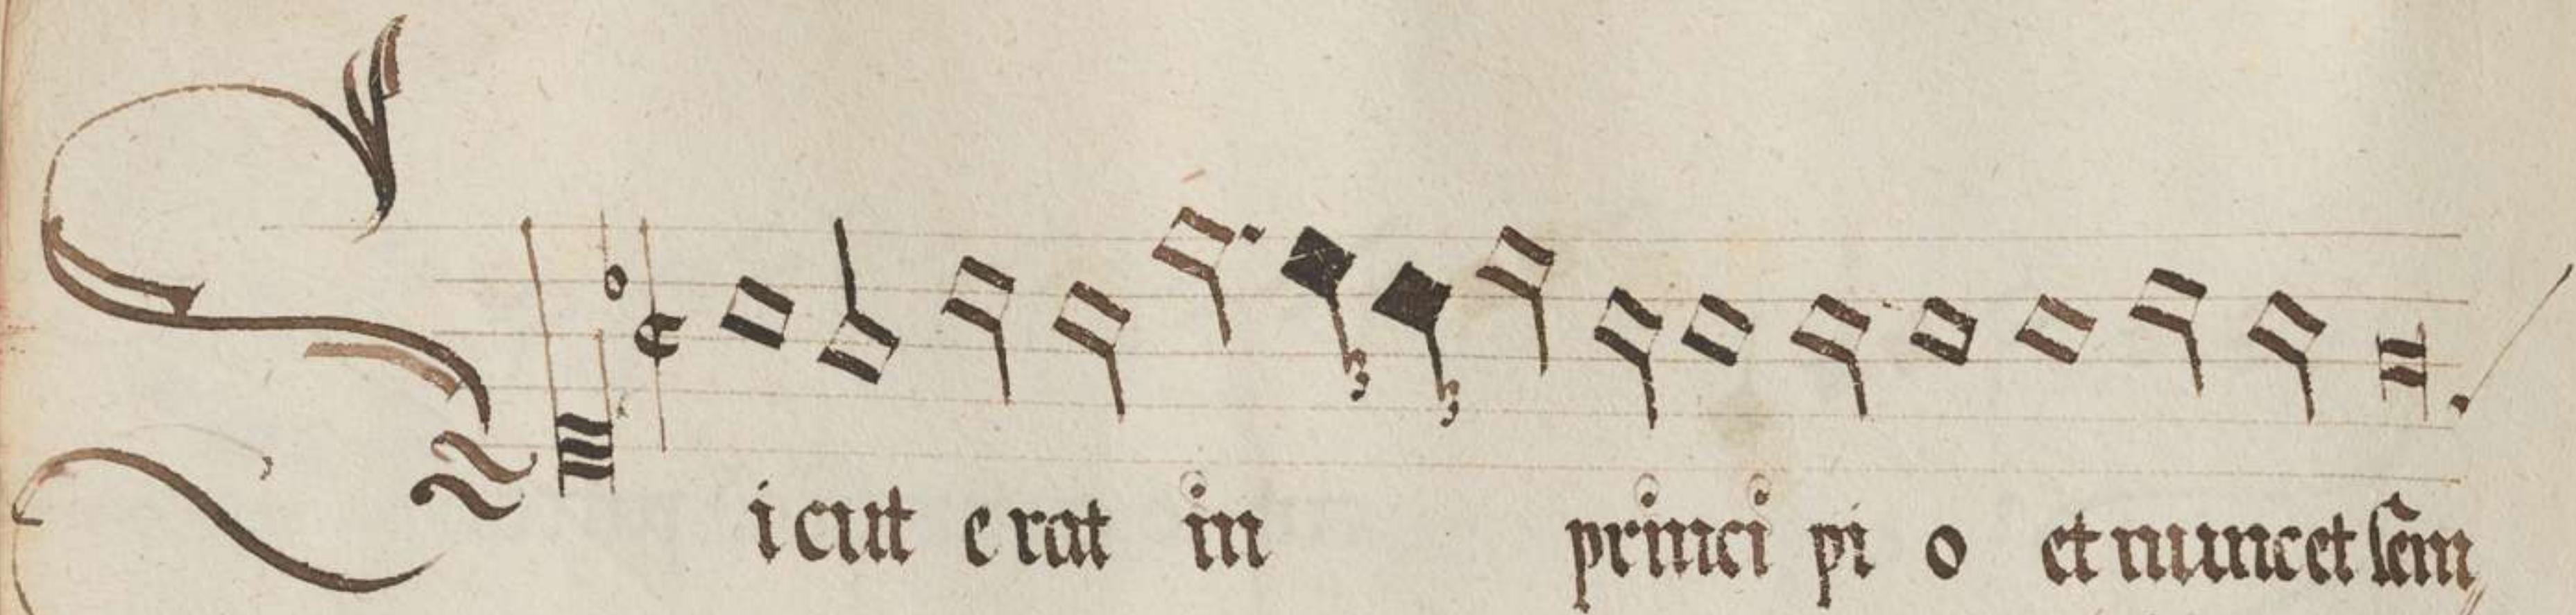 Sicut erat in principio et nunc et sēm